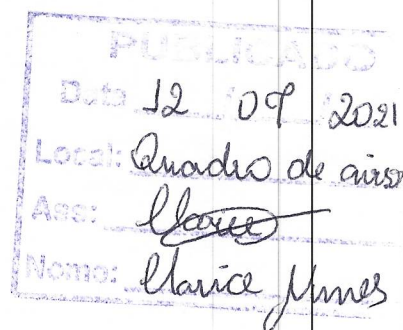 PUBLICADO
Data 12 07 2021
Local: Quadro de aviso
Ass:
Nome: Clarice Nunes